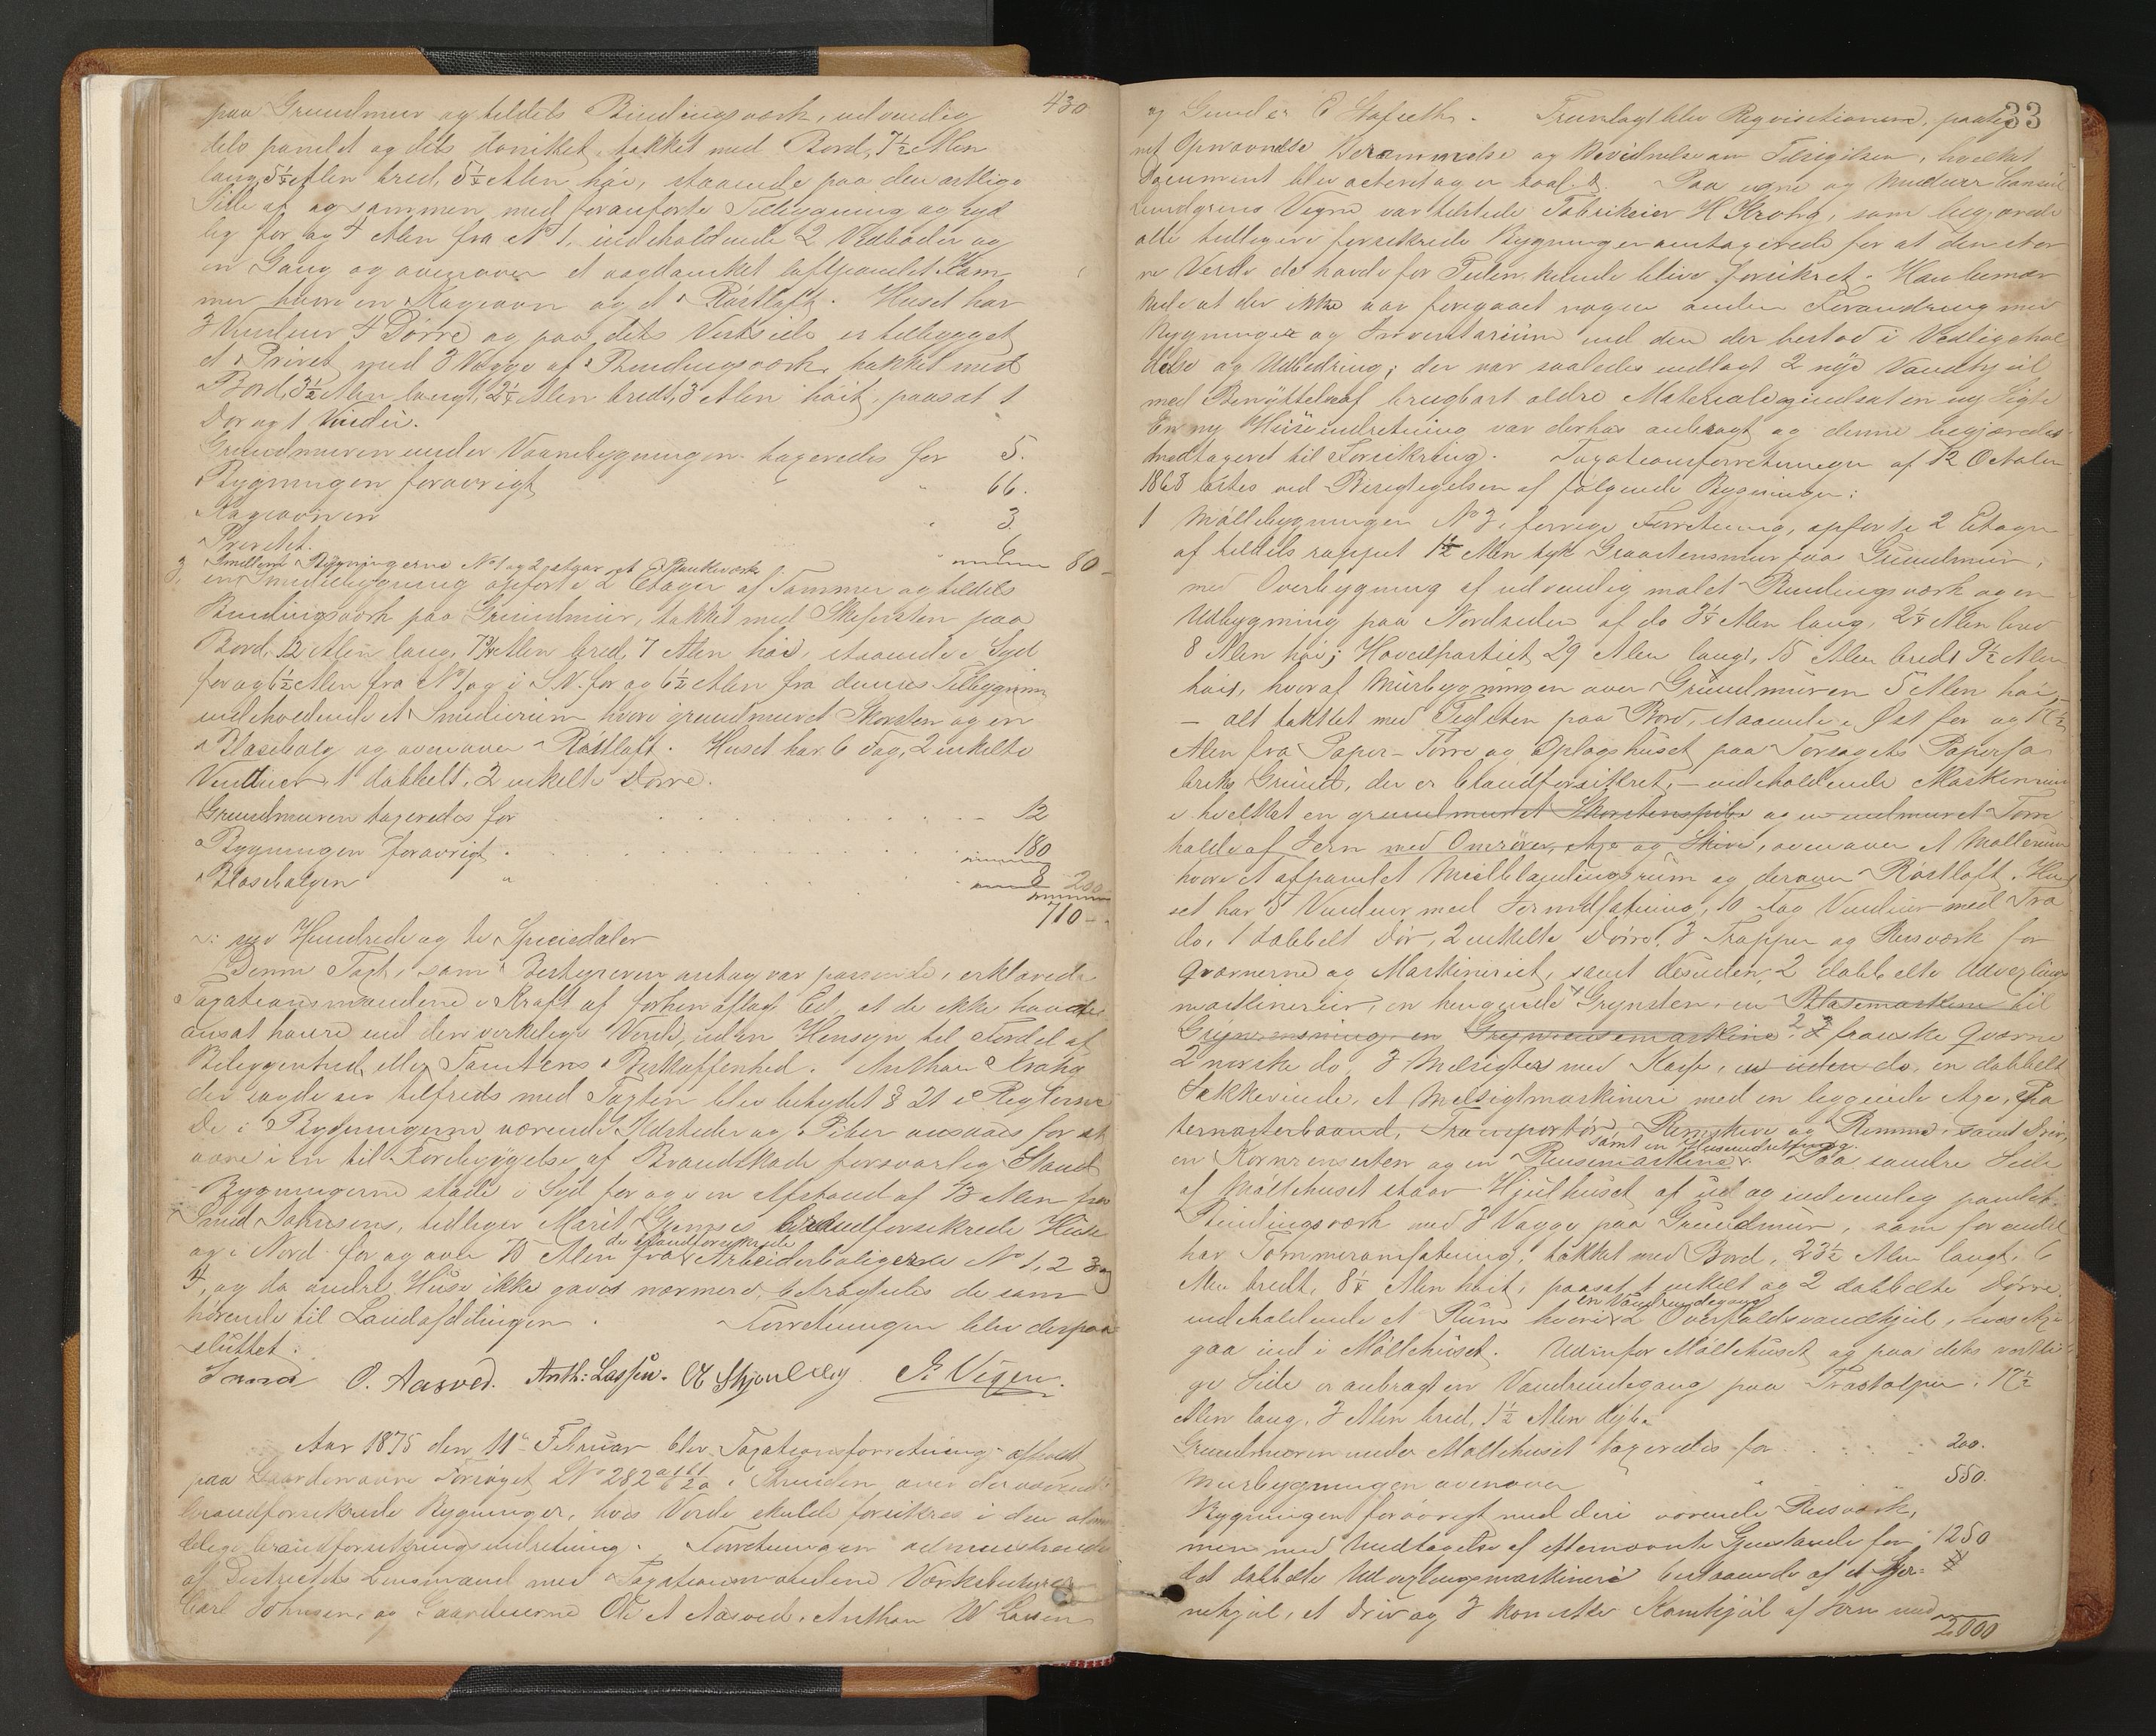 430
paa Grundmur og tildels Bindingsværk, udvendig
dels panelet og dels tømret, takket med Bord, 7½ Alen
lang, 5¼ Alen bred, 5¼ Alen høi, staaende paa den østlige
Side af og sammen med foranførte Tilbygning og syd
lig for og 4 Alen fra No 1, indeholdende 2 Vedboder og
en Gang og ovenover et løftpanelet Kam
mer hvori en Kageovn og et Røstloft. Huset har
3 Vinduer 4 Dørre og paa dets Vestside er tilbygget
et Privet med 3 Vægge af Bindingsværk, takket med
Bord, 3½ Alen langt, 2¼ Alen bredt, 3 Alen høit, paasat 1
Dør og 1 Vindu.
Grundmuren under Vaanebygningen taxeredes for 5.
Bygningen forøvrigt " 66.
Kageovnen " 3.
Privetet " 6 80 -
Imellem Bygningerne No 1 og 2 et Plankeværk
3. en Smidiebygning opført i 2 Etager af Tømmer og tildels
Bindingsværk paa Grundmur, takket med Skifersten paa
Bord, 12 Alen lang, 7¾ Alen bred, 7 Alen høi, staaende i Syd
for og 6½ Alen fra No 1 og i S.V. for og 6½ Alen fra dennes Tilbygning
indeholdende et Smidierum hvori grundmuret Skorsten og en
Blasebalg og ovenover Røstloft. Huset har 6 Fag, 2 enkelte
Vinduer, 1 dobbelt, 2 enkelte Dørre.
Grundmuren taxeredes for 12
Bygningen forøvrigt 180
Blasebalgen " 8 200
710 -
: syv Hundrede og ti Speciedaler
Denne Taxt, som Bestyreren antog var passende, erklærede
Taxationsmændene i Kraft af forhen aflagt Ed, at de ikke havde
ansat høiere end den virkelige Værdi, uden Hensyn til Fordel af
Beliggenhed eller Tomtens Beskaffenhed. Anthon Krohg
der sagde sig tilfreds med Taxten blev betydet § 21 i Reglerne
De i Bygningerne værende Ildsteder og Piber ansaaes for at
være i en til Forebyggelse af Brandskade forsvarlig Stand
Bygningerne stode i Syd for og i en Afstand af 13 Alen fra
Smed Johnsens, tidligere Marit Grempses brandforsikrede Huse
og i Nord for og over 70 Alen fra de brandforsikrede Arbeiderboligerne No 1, 2 3 og
4, og da andre Huse ikke gaves nærmere, betragtedes de som
hørende til Landafdelingen. Forretningen blev derpaa
sluttet.
O. Aasved. Anth: Lassen. J. Vigen.
Aar 1875 den 11te Februar blev Taxationsforretning afholdt
paa Gaarden øvre Forsøget, LNo 282 i Strinden, over derværende
brandforsikrede Bygninger, hvis Værdi skulde forsikres i den almin
delige Brandforsikringsindretning. Forretningen administreredes
af Districtets Lensmand med Taxationsmændene Værksbestyrer
Carl Johnsen, og Gaardeierne Ole A Aasved, Anthon W Lassen
33
og Gunder E Hofseth. Fremlagt blev Reqvisitionen, paateg
net Opnævnelse Berammelse og Bevidnelse om Tilsigelsen, hvilket
Document blev acteret og er saal. Paa egne og Medeier Consul
Lundgrens Vegne var tilstede Fabrikeier H Krohg, som begjærede
alle tidligere forsikrede Bygninger omtaxerede for at den stør
re Værdi de havde for Tiden kunde blive forsikret. Han bemær
kede at der ikke var foregaaet nogen anden Forandring med
Bygninger og Inventarium end den der bestod i Vedligehol
delse og Udbedring; der var saaledes indlagt 2 nye Vandhjul
med Benyttelse af brugbart ældre Materiale og indsat en ny Sigte
En ny Hiseindretning var derhos anbragt og denne begjæredes
medtaget til Forsikring. Taxationsforretningen af 12 October
1868 læstes ved Besigtigelsen af følgende Bygninger:
1 Møllebygningen No 3 i forrige Forretning, opført i 2 Etager
af tildels rappet 1½ Alen tyk Graastensmur paa Grundmur,
med Overbygning af udvendig malet Bindingsværk og en
Udbygning paa Nordsiden af do 3¼ Alen lang, 2¼ Alen bred
8 Alen høi; Hovedpartiet 29 Alen langt, 15 Alen bredt 9½ Alen
høit, hvoraf Murbygningen over Grundmuren 5 Alen høi
- alt takket med Teglsten paa Bord, staaende i Øst for og
Alen fra Papir-Tørre og Oplagshuset paa Forsøgets Papirfa
briks Grund, der er brandforsikret, - indeholdende Maskinrum
i hvilket en grundmuret Skorstenspibe og en indmuret Tørre
holde af Jern med Omrører, Axe og Skive, ovenover et Møllerum
hvori et afpanelet Melblandingsrum og derover Røstloft. Hu
set har 5 Vinduer med Jernindfatning, 10 Fag Vinduer med Træ
do, 1 dobbelt Dør, 2 enkelte Dørre, 3 Trapper og Reisværk for
Qværnerne og Maskineriet, samt desuden 2 dobbelte Udvexlings
maskinerier, en hengende Grynsten, en Blæsemaskine til
Grynrensning, en Grynrensemaskine 2 franske Qværne
2 norske do, 3 Melsigter med Kasse, en uden do, en dobbelt
Sækkevinde, et Melsigtmaskineri med en liggende Axe, Pa
ternosterbaand, Transportør, Remskive og Remme, samt Driv
en Kornrensesten og en Rensemaskine samt en Hiseindretning. Paa søndre Side
af Møllehuset staar Hjulhuset af ud og indvendig panelet
Bindingsværk med 3 Vægge paa Grundmur, som for endel
har Tømmeromfatning, takket med Bord, 23½ Alen langt, 6
Alen bredt, 8¼ Alen høit, paasat 1 enkelt og 2 dobbelte Dørre
indeholdende et Rum hvori en Vandrendegang 2 Overfaldsvandhjul, hvis Axe
gaa ind i Møllehuset. Udenfor Møllehuset og paa dets vestli
ge Side er anbragt en Vandrendegang paa Træstolper, 17½
Alen lang, 3 Alen bred, 1½ Alen dyb.
Grundmuren under Møllehuset taxeredes for 200.
Murbygningen ovenover " 550.
Bygningen forøvrigt med deri værende Reisværk,
men med Undtagelse af efternævnte Gjenstande for 1250
det dobbelte Udvexlingsmaskineri bestaaende af et Stjer-
nehjul, et Driv og 3 koniske Kamhjul af Jern med
2000